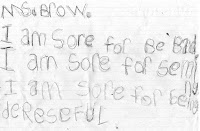 MS. BrOW.
I am Sore for Be Bad
I am Sore for semi
I am Sore for being
deReSeFUL